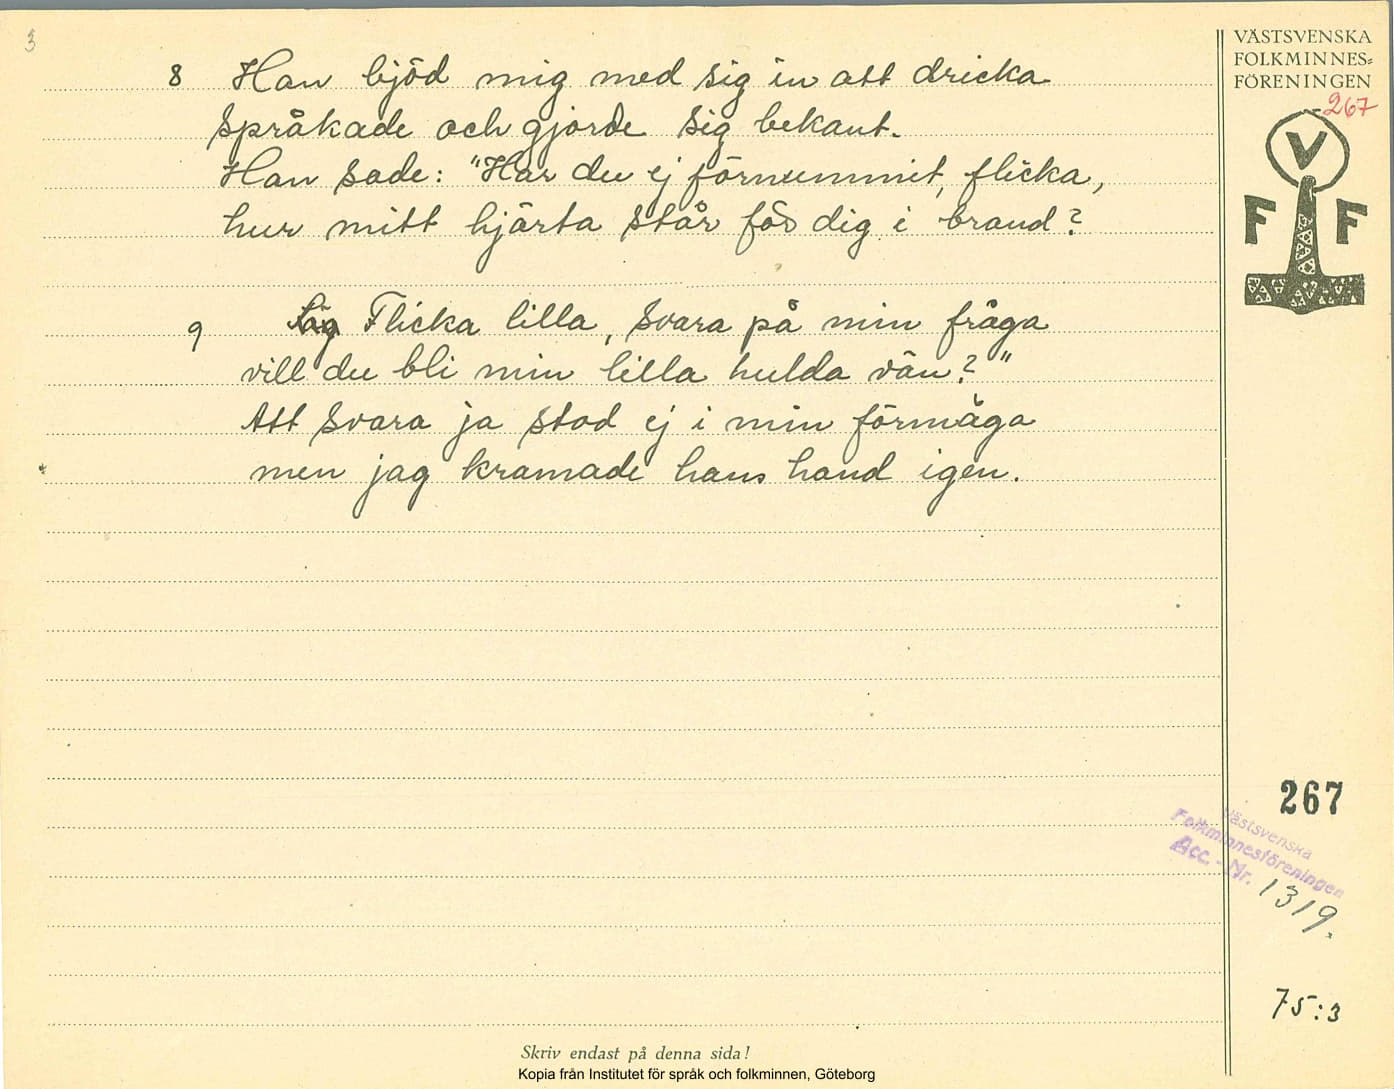 3
8 Han bjöd mig med sig in att dricka
språkade och gjorde sig bekant.
Han sade: "Har du ej förnummit, flicka,
hur mitt hjärta står för dig i brand?
9 Flicka lilla, svara på min fråga
vill du bli min lilla hulda vän?"
Att svara ja stod ej i min förmåga
men jag kramade hans hand igen.
Skriv endast på denna sida!
Kopia från Institutet för språk och folkminnen, Göteborg
VÄSTSVENSKA
FOLKMINNES=
FÖRENINGEN
267
V
F F
267
Västsvenska
Folkminnesföreningen
Acc. - Nr. 1319.
75:3